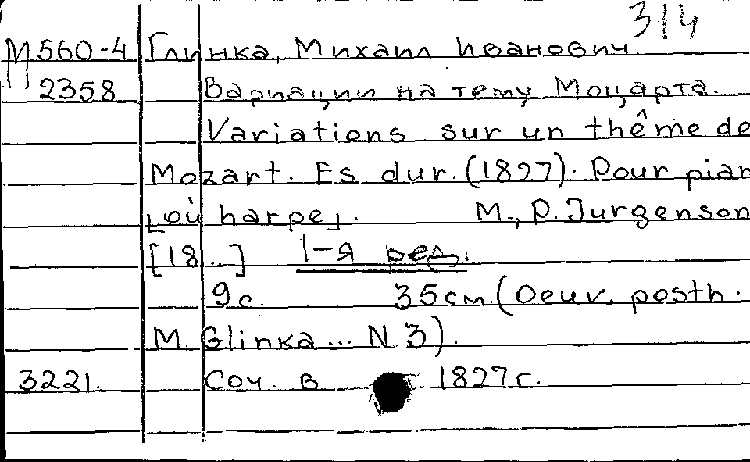 3/4
М 560-4 Глинка, Михаил Иванович.
2358 Вариации на тему Моцарта.
Variations sur un thême de
Mozart. Es dur. (1827). Pour pian
[où harpe]. М., P. Jurgenson
[18..] 1-я ред.
9с. 35см (Oeuv. posth.
M. Glinka... N 3).
3221. Соч. в 1827г.